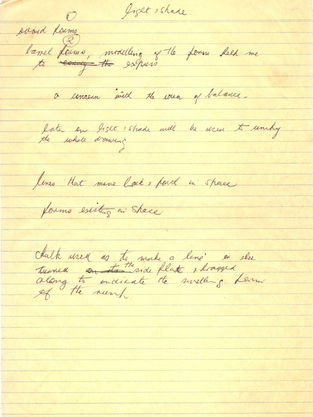 ① light & shade
round forms
②
barrel forms, modelling of the forms held me
to convey the express
a concern with the idea of balance.
later on light & shade will be seen to unify
the whole drawing
lines that move back & forth in space
forms existing in space
Chalk used as to make a line or else
turned on the side flat & dragged
along to indicate the swelling form
of the rump